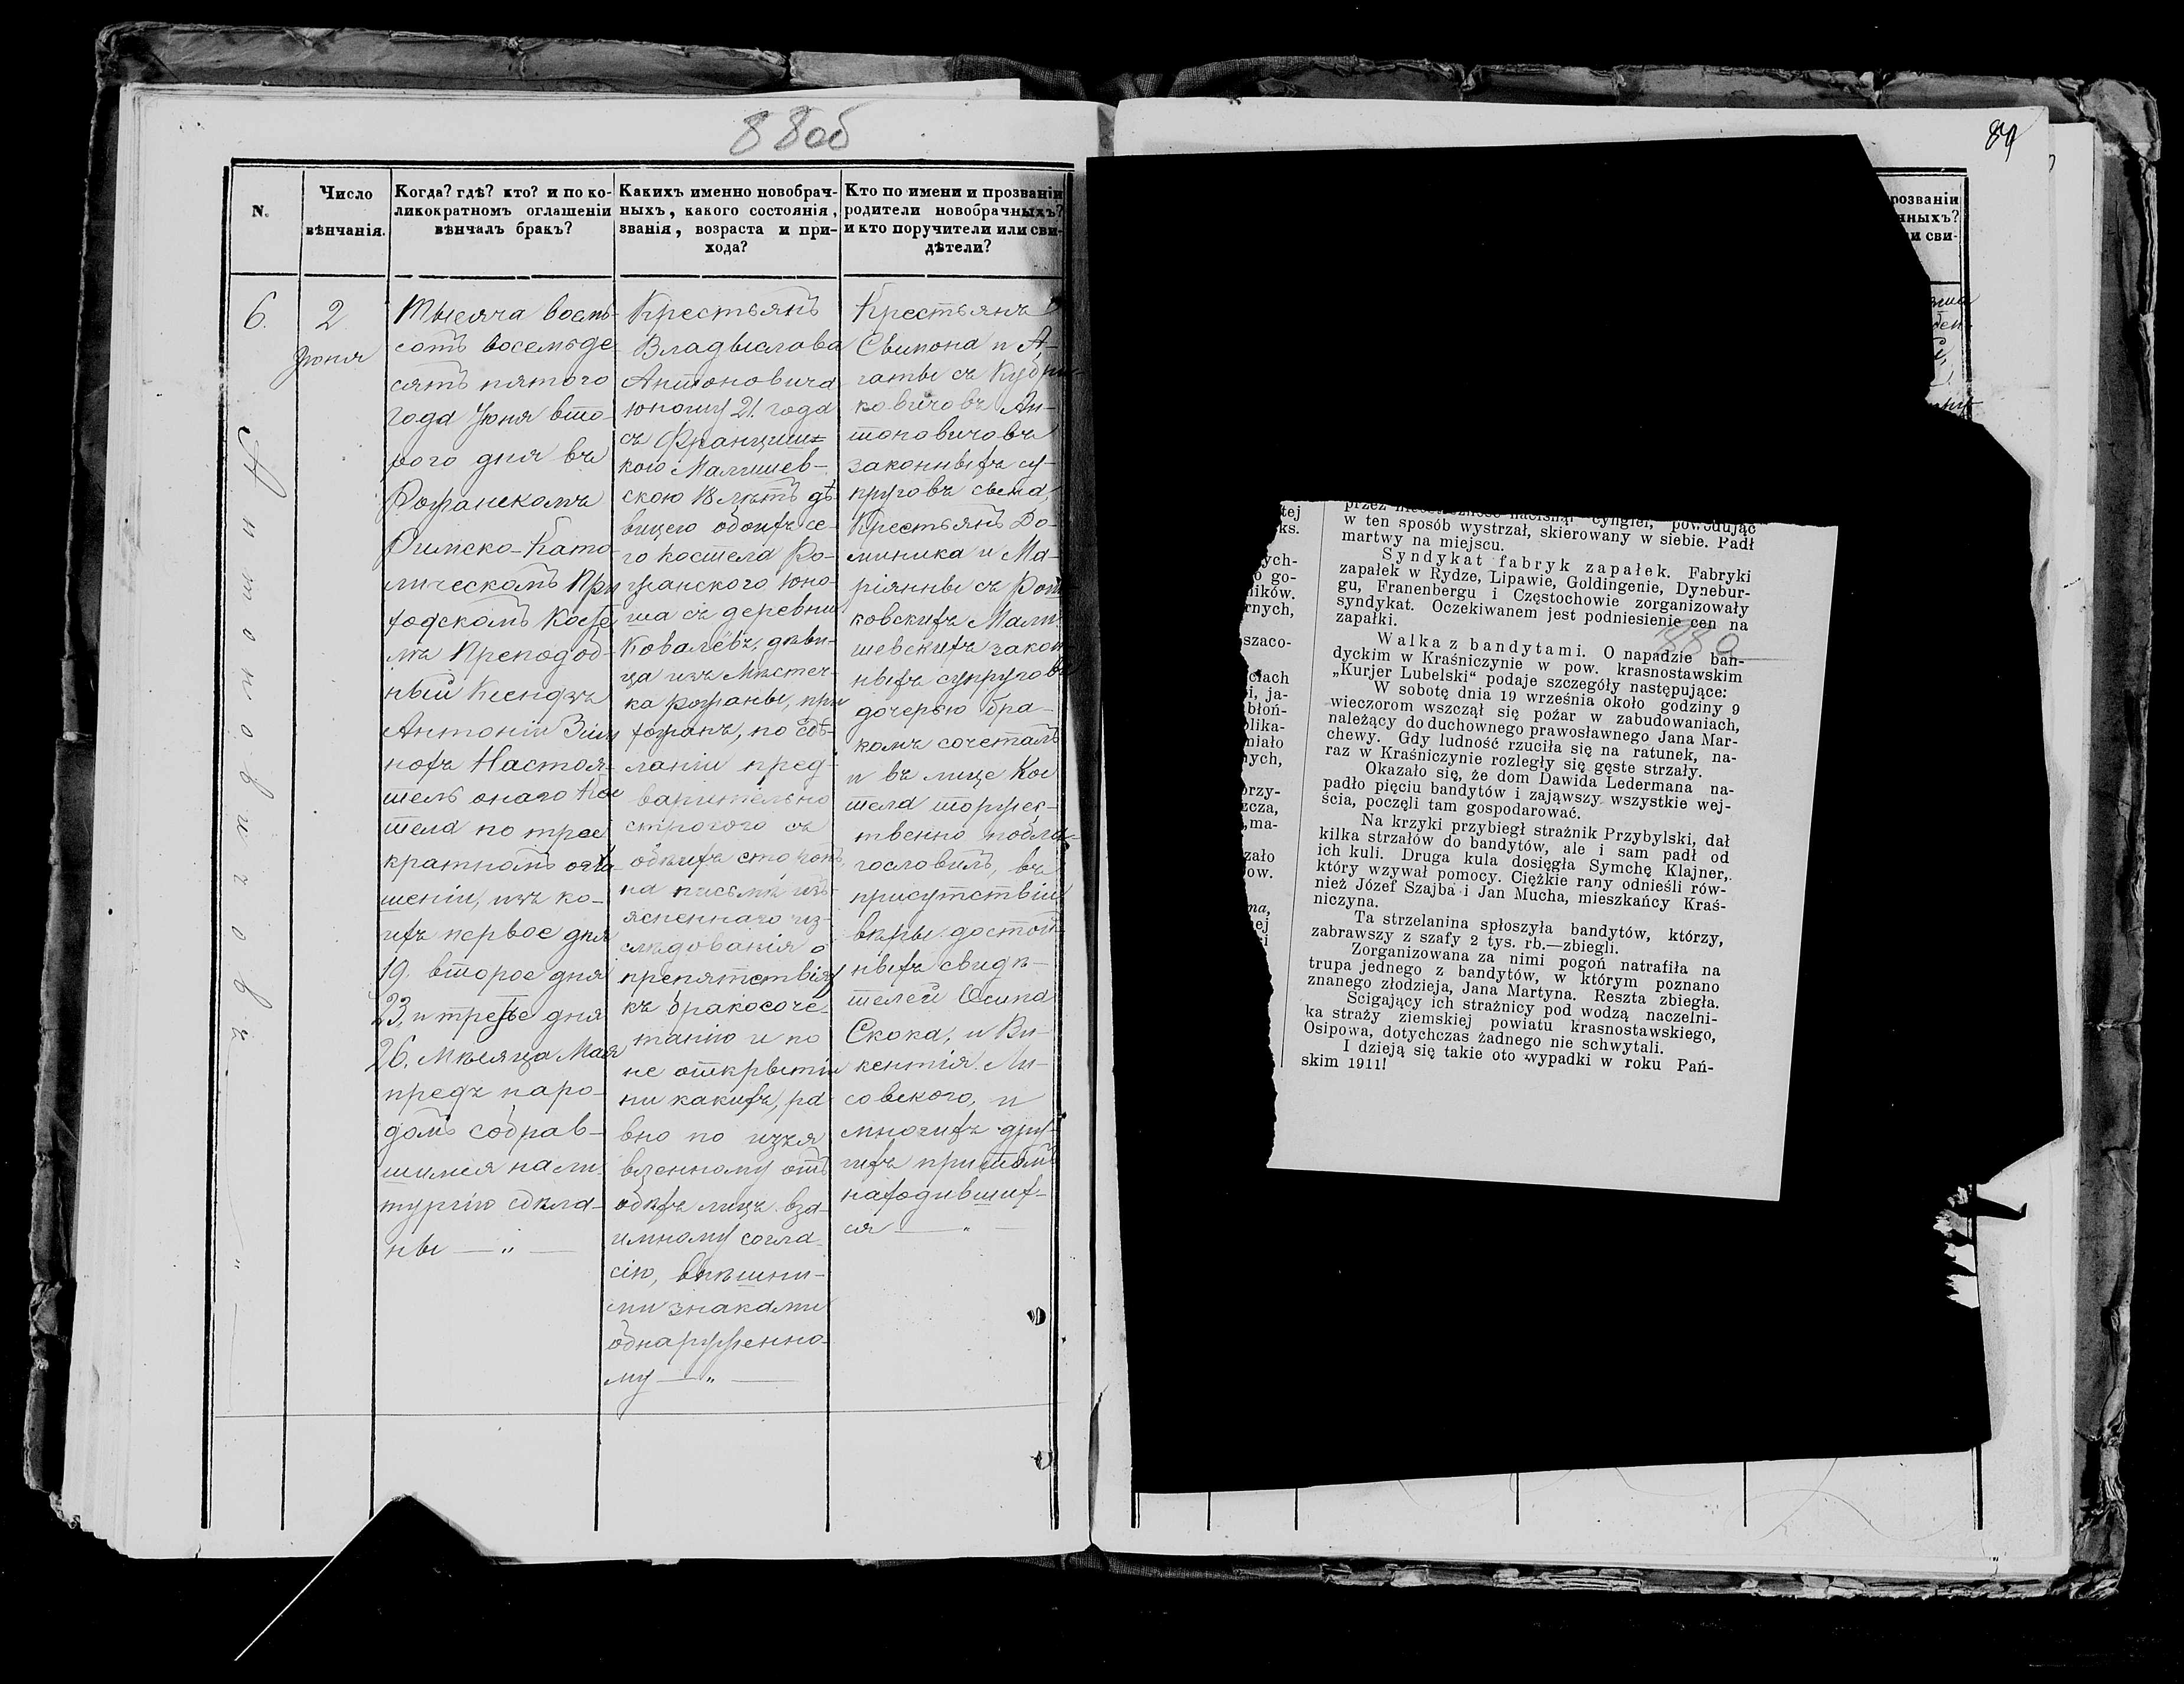 88об
N.
Число
вѣнчанія.
Когда? гдѣ? кто? и по ко-
ликократномъ оглашеніи
вѣнчалъ бракъ?
Какихъ именно новобрач-
ныхъ, какого состоянія,
званія, возраста и при-
хода?
Кто по имени и прозванію
родители новобрачныхъ?
и кто поручители или сви-
дѣтели?
6.
Антоновичовъ
2
Іюня
Тысяча восемь-
сотъ восемьде-
сятъ пятого
года Іюня вто-
рого дня въ
Рожанскомъ
Римско-Като-
лическомъ При
ходскомъ Косте
лѣ Преподоб-
ный Ксендзъ
Антоній
Настоя-
тель онаго Кос
тела по трое
кратномъ огла-
шеніи, изъ ко-
ихъ первое дня
19. второе дня
23, и третье дня
26. Мѣсяца Мая
предъ наро-
домъ собрав-
шимся на ли-
тургію сдѣла-
ны — „ —
Крестьянъ
Владыслава
Антоновича
юношу 21. года
съ Францишь
кою Малишев-
скою 18 лѣтъ дѣ-
вицею обоихъ се-
го костела Ро-
жанского юно-
ша съ деревни
Ковалёвъ, дѣви-
ца изъ Мѣстеч-
ка Рожаны, при
хожанъ, по сдѣ-
ланіи пред-
варительно
строгого съ
обѣихъ сторонъ,
на письмѣ изъ-
ясненнаго из-
слѣдованія о
препятствіяхъ
къ бракосоче-
танію и по
не открытіи
ни какихъ, ра-
вно по изъя
вленному отъ
обѣхъ лицъ вза-
имному согла-
сію, внѣшни-
ми знаками
обнаруженно-
му — „ —
Крестьянъ
Свимона и А-
гаты съ
ковичовъ Ан-
тоновичовъ
законныхъ су-
пруговъ сына,
Крестьянъ До-
миника и Ма-
ріянны съ
ковскихъ Мали-
шевскихъ закон
ныхъ супруговъ
дочерью бра-
комъ сочеталъ
и въ лице Кос
тела торжес-
твенно побла-
гословилъ, въ
присутствіи
вѣры достой-
ныхъ свидѣ-
телей Осипа
Скока, и Ви-
кентія Ли-
совского, и
многихъ дру-
гихъ притомъ
находивших-
ся — „ —
89
розваніи
чныхъ?
и сви-
przez nieostrożność nacisnął cyngiel, powodując
w ten sposób wystrzał, skierowany w siebie. Padł
martwy na miejscu.
Syndykat fabryk zapałek. Fabryki
zapałek w Rydze, Lipawie, Goldingenie, Dynebur-
gu, Franenbergu i Częstochowie zorganizowały
syndykat. Oczekiwanem jest podniesienie cen na
zapałki.
Walka z bandytami. O napadzie ban-
dyckim w Kraśniczynie w pow. krasnostawskim
„Kurjer Lubelski“ podaje szczegóły następujące:
W sobotę dnia 19 września około godziny 9
wieczorem wszczął się pożar w zabudowaniach,
należący do duchownego prawosławnego Jana Mar-
chewy. Gdy ludność rzuciła się na ratunek, na-
raz w Kraśniczynie rozległy się gęste strzały.
Okazało się, że dom Dawida Ledermana na-
padło pięciu bandytów i zająwszy wszystkie wej-
ścia, poczęli tam gospodarować.
Na krzyki przybiegł strażnik Przybylski, dał
kilka strzałów do bandytów, ale i sam padł od
ich kuli. Druga kula dosięgła Symchę Klajner,
który wzywał pomocy. Ciężkie rany odnieśli rów-
nież Józef Szajba i Jan Mucha, mieszkańcy Kraś-
niczyna.
Ta strzelanina spłoszyła bandytów, którzy,
zabrawszy z szafy 2 tys. rb.—zbiegli.
Zorganizowana za nimi pogoń natrafiła na
trupa jednego z bandytów, w którym poznano
znanego złodzieja, Jana Martyna. Reszta zbiegła.
Ścigający ich strażnicy pod wodzą naczelni-
ka straży ziemskiej powiatu krasnostawskiego,
Osipowa, dotychczas żadnego nie schwytali.
I dzieją się takie oto wypadki w roku Pań-
skim 1911!